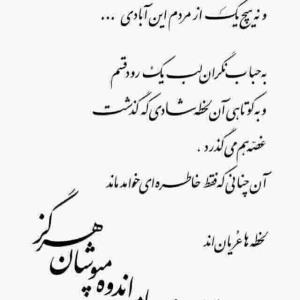 و نه هیچ یک از مردم این آبادی ...
به حباب نگران لب یک رود قسم
و به کوتاهی آن لحظه شادی که گذشت
غصه هم می گذرد ،
آن چنانی که فقط خاطره ای خواهد ماند
لحظه ها عریان اند
هرگز
مپوشان
اندوه